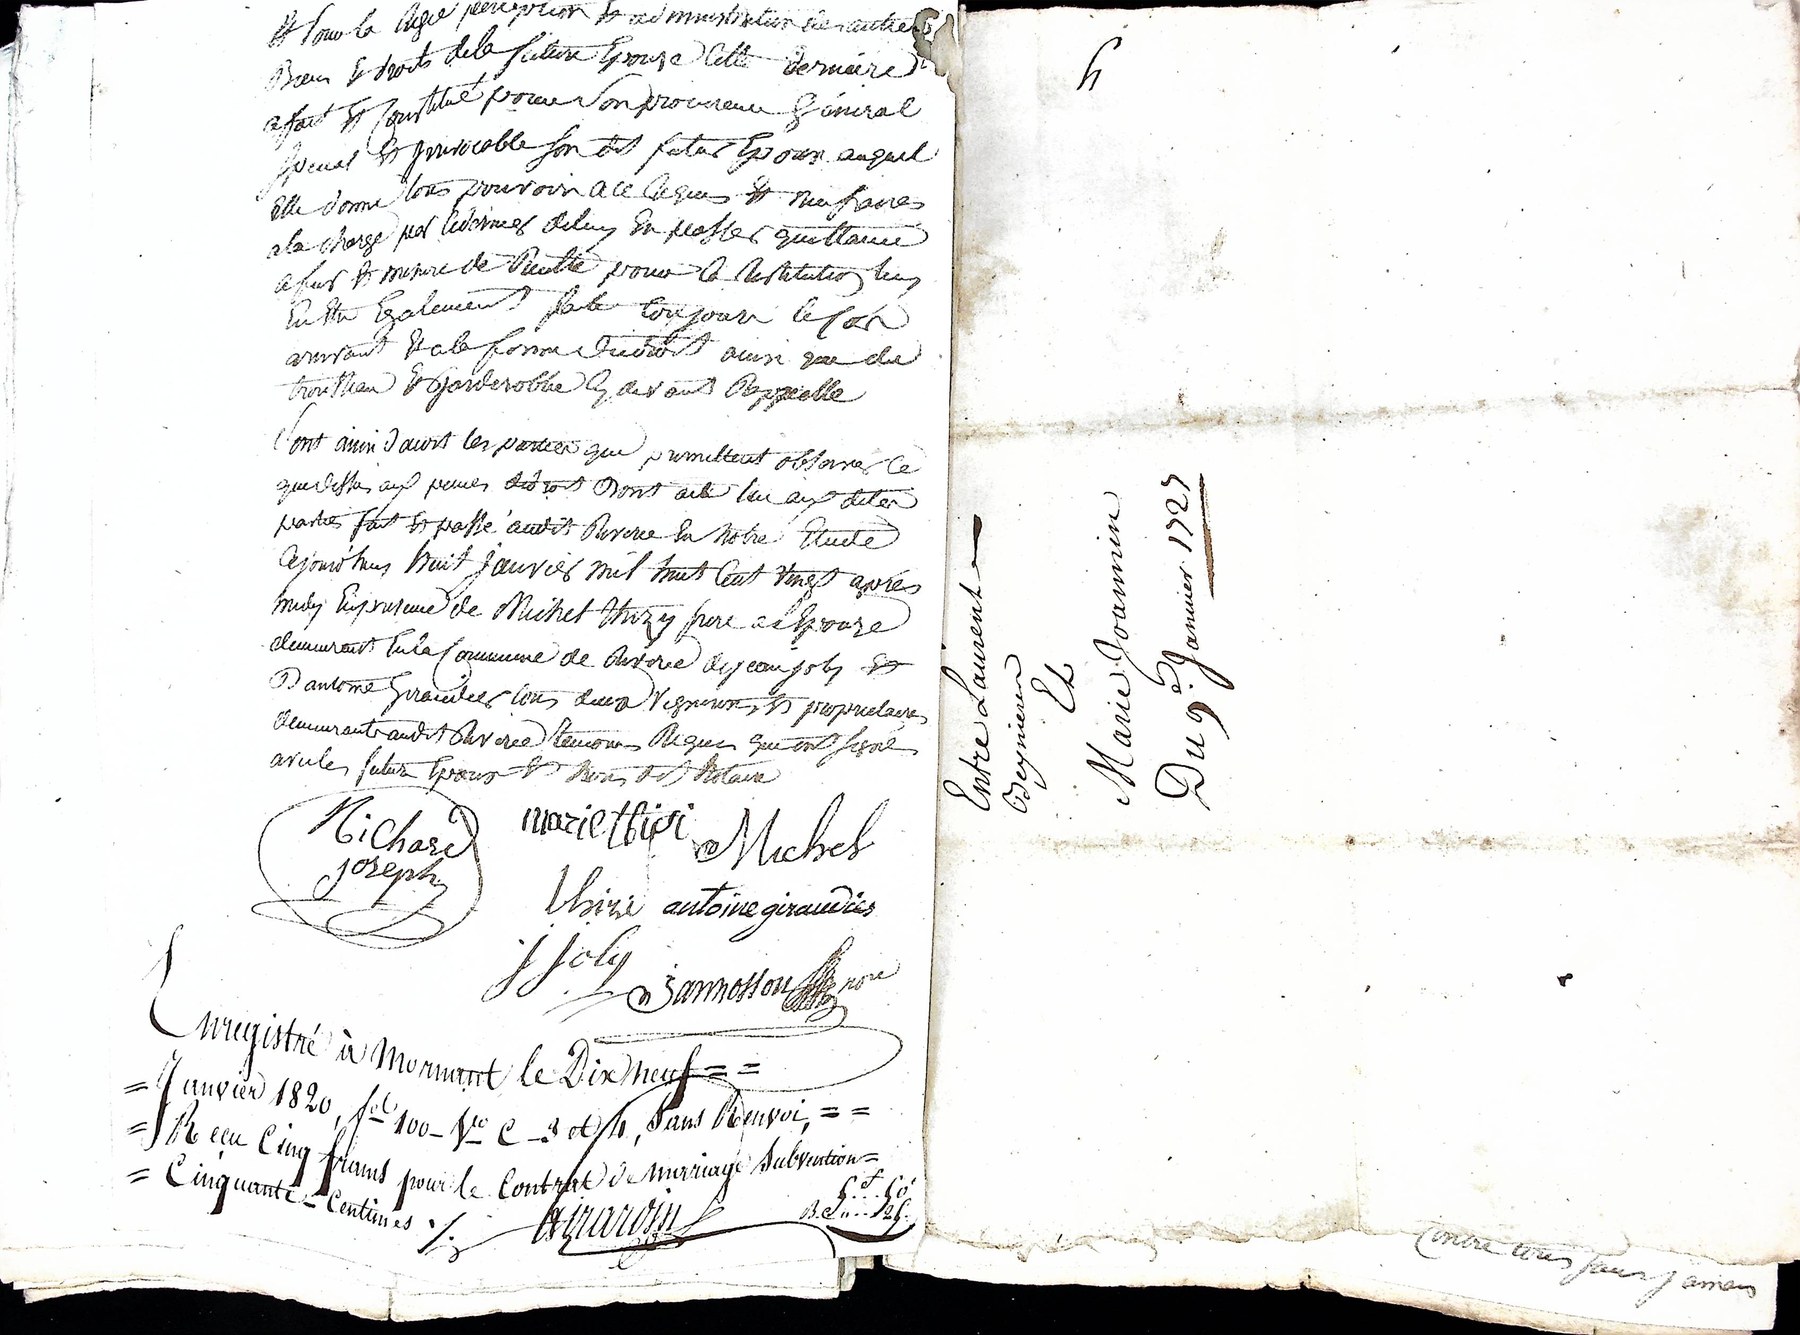 Et pour la Regie perception Et administration des autres
Biens Et droits de la future Epouze Cette derniere
a fait Et Constitué pour son procureur Général
Special Et irrevocable son dit futur Epoux auquel
Elle donne tous pouvoirs a ce Requis Et necessaires
a la charge par les dernier de luy En passer quittance
a fur Et mesure de Recette pour la Restitution luy
En Etre Egalement faite toujours le Cas
arrivant Et a la forme du droit ainsi que du
trousseau Et Garderobbe Cy devant Rappellé
Sont ainsi d'accord les parties qui promettent observer Ce
que dessus aux peines de droit Dont acte lu aux dites
parties fait Et passé audit Riverie En notre Etude
Cejourd'huy huit janvier mil huit Cent vingt après
midy En presence de Michel thizy frere a l'Epouze
demeurant En la Commune de Riverie de jean joly Et
D'antoine Giraudier tous deux vignerons Et proprietaires
demeurants audit Riverie temoins Requis qui ont signé
avec les futurs Epoux Et Nous dit Notaire
Richard
Joseph
marie thisi
Michel
thisi antoine giraudier
J Joly
Jannosson nore
Enregistré à Mornant le Dix neuf = =
= Janvier 1820, fol 100 - Vo C - 3 et 4, Sans Renvoi, = =
= Reçu Cinq francs pour le Contrat de mariage Subvention =
= Cinquante - Centimes ./.
5f....50c
Girardin
h
Entre Laurent
Beynieren
Et
Marie Joannin
Du 9e Janvier 1727
Contre tous sans jamais